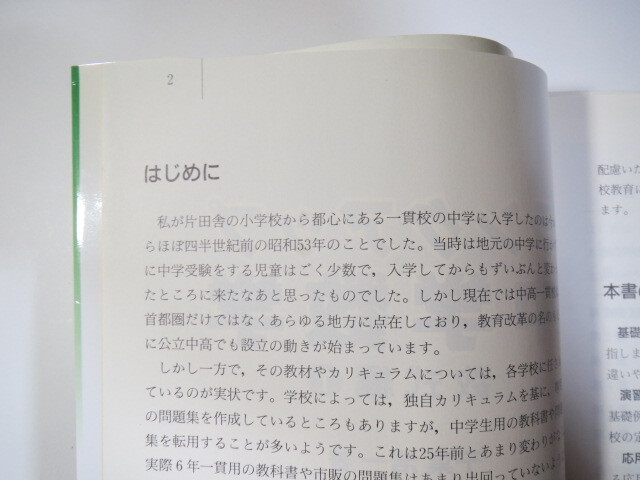 2
はじめに
私が片田舎の小学校から都心にある一貫校の中学に入学したのは
らほぼ四半世紀前の昭和53年のことでした。当時は地元の中学に行か
に中学受験をする児童はごく少数で，入学してからもずいぶんと
たところに来たなあと思ったものでした。しかし現在では中高一貫
首都圏だけではなくあらゆる地方に点在しており，教育改革の名の
に公立中高でも設立の動きが始まっています。
しかし一方で，その教材やカリキュラムについては，各学校に任
ているのが実状です。学校によっては，独自カリキュラムを基に，
の問題集を作成しているところもありますが，中学生用の教科書や
集を転用することが多いようです。これは25年前とあまり変わりが
実際6年一貫用の教科書や市販の問題集はあまり出回っていない
配慮いた
校教育
ます。
本書
基礎
指しま
違いや
演習
基礎例
校の定
応用